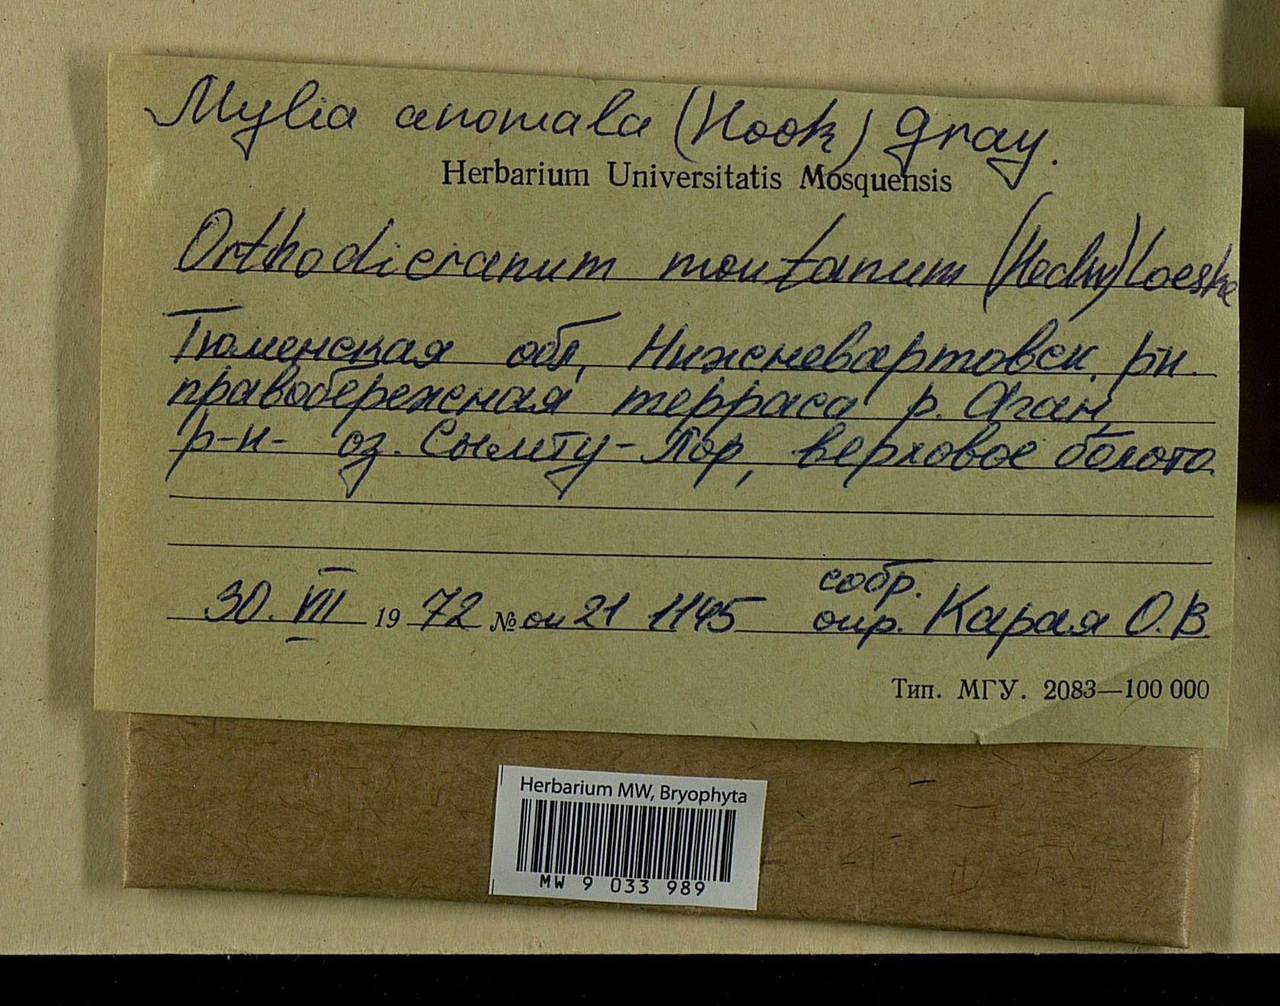 Mylia anomala (Hook) Gray.
Herbarium Universitatis Mosquensis
Orthodicranum montanum (Hedw) Loeske
Тюменская обл, Нижневартовск. рн.
правобережная терраса р. Аган,
р-н- оз. Сымту-Лор, верховое болото.
собр.
30. VII 1972 № оп 21 1145 опр. Карая О.В.
Тип. МГУ. 2083—100 000
Herbarium MW, Bryophyta
MW 9 033 989